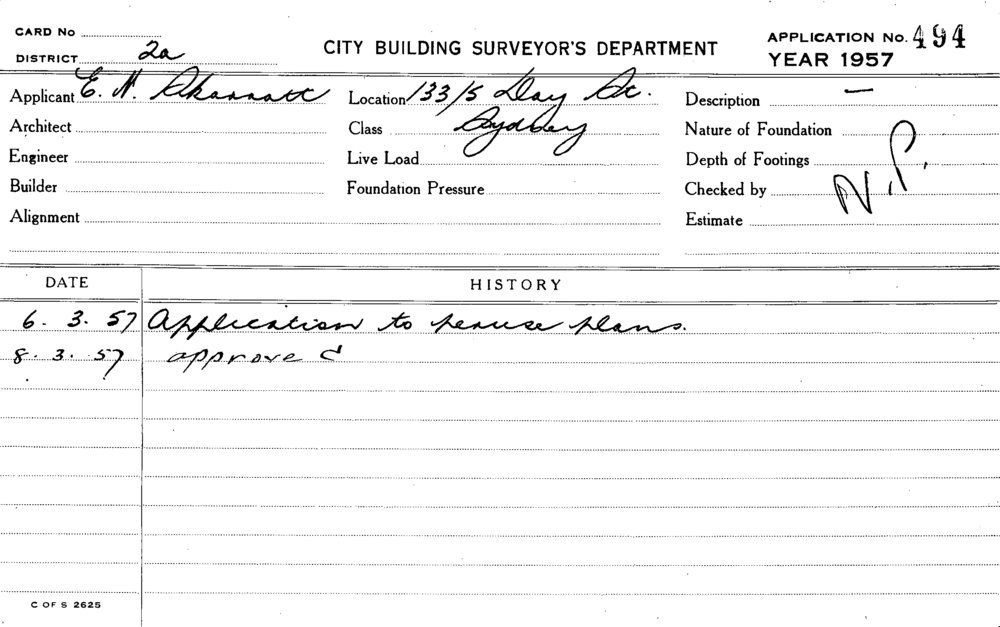 CARD No
DISTRICT 2a
CITY BUILDING SURVEYOR'S DEPARTMENT
APPLICATION No. 494
YEAR 1957
Applicant E. N.
Location 133/5 Day St.
Description —
Architect
Class Sydney
Nature of Foundation
Engineer
Live Load
Depth of Footings
Builder
Foundation Pressure
Checked by N.P.
Alignment
Estimate
DATE
HISTORY
6. 3. 57 Application to peruse plans.
8. 3. 57 approved
C OF S 2625